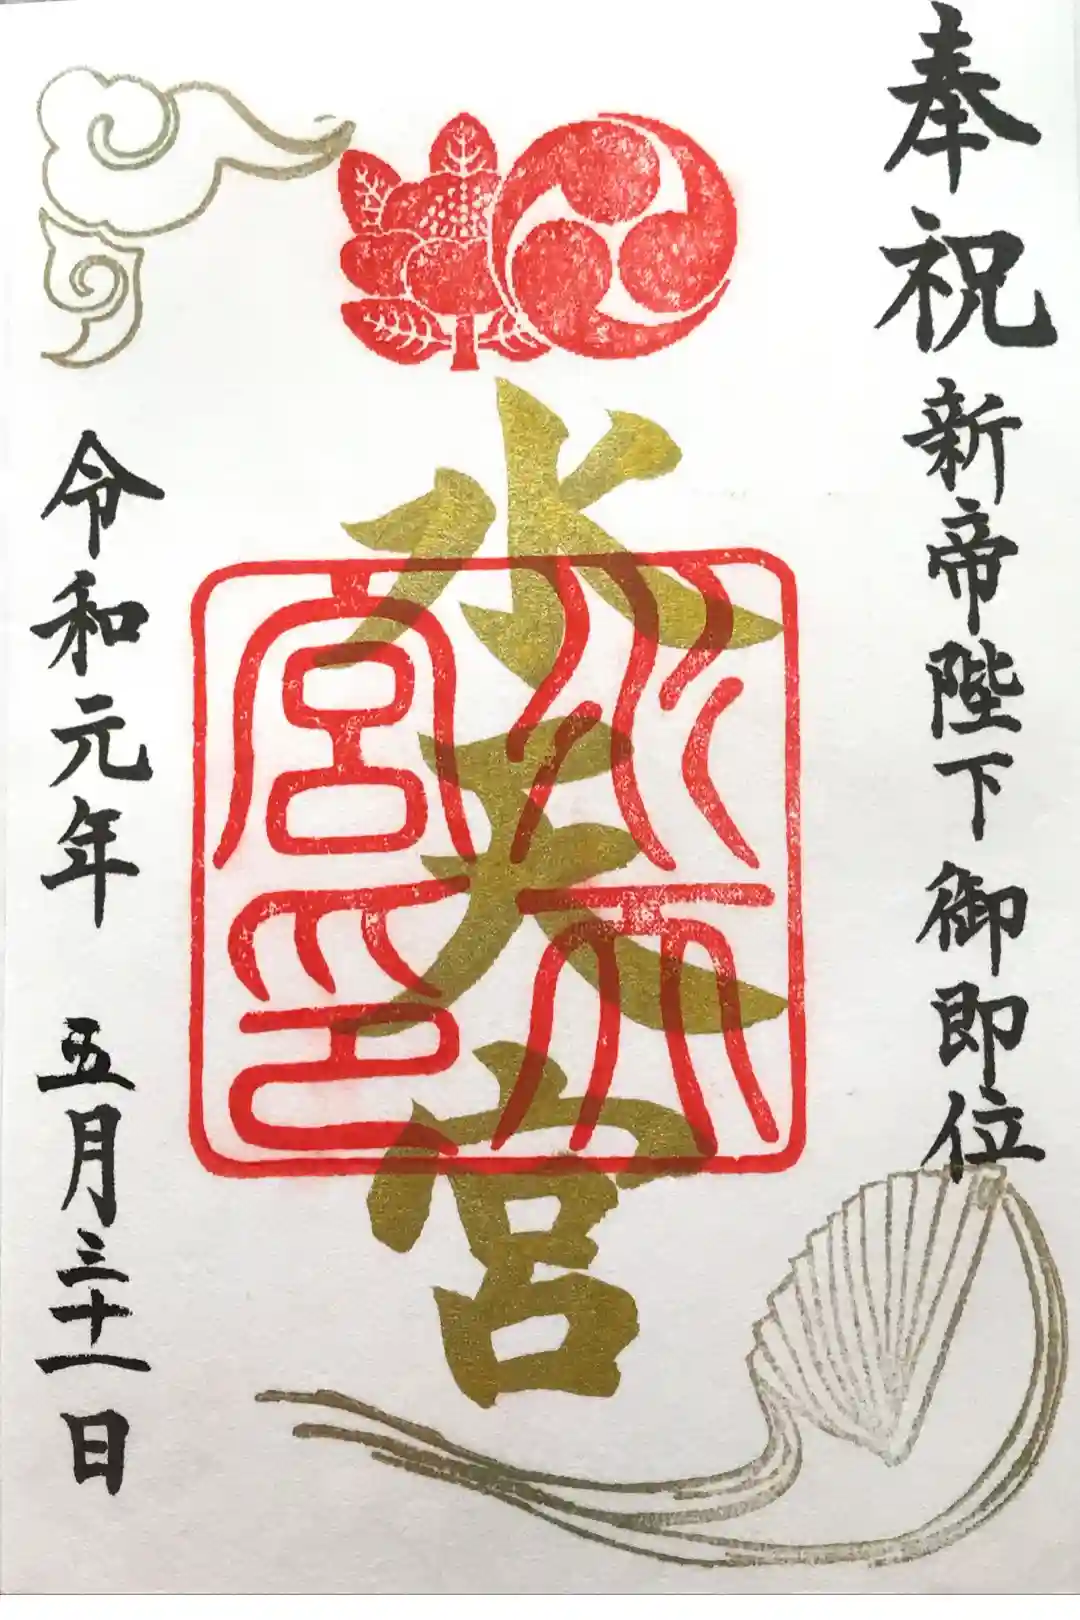 奉祝 新帝陛下御即位
水天宮
水天宮印
令和元年 五月三十一日